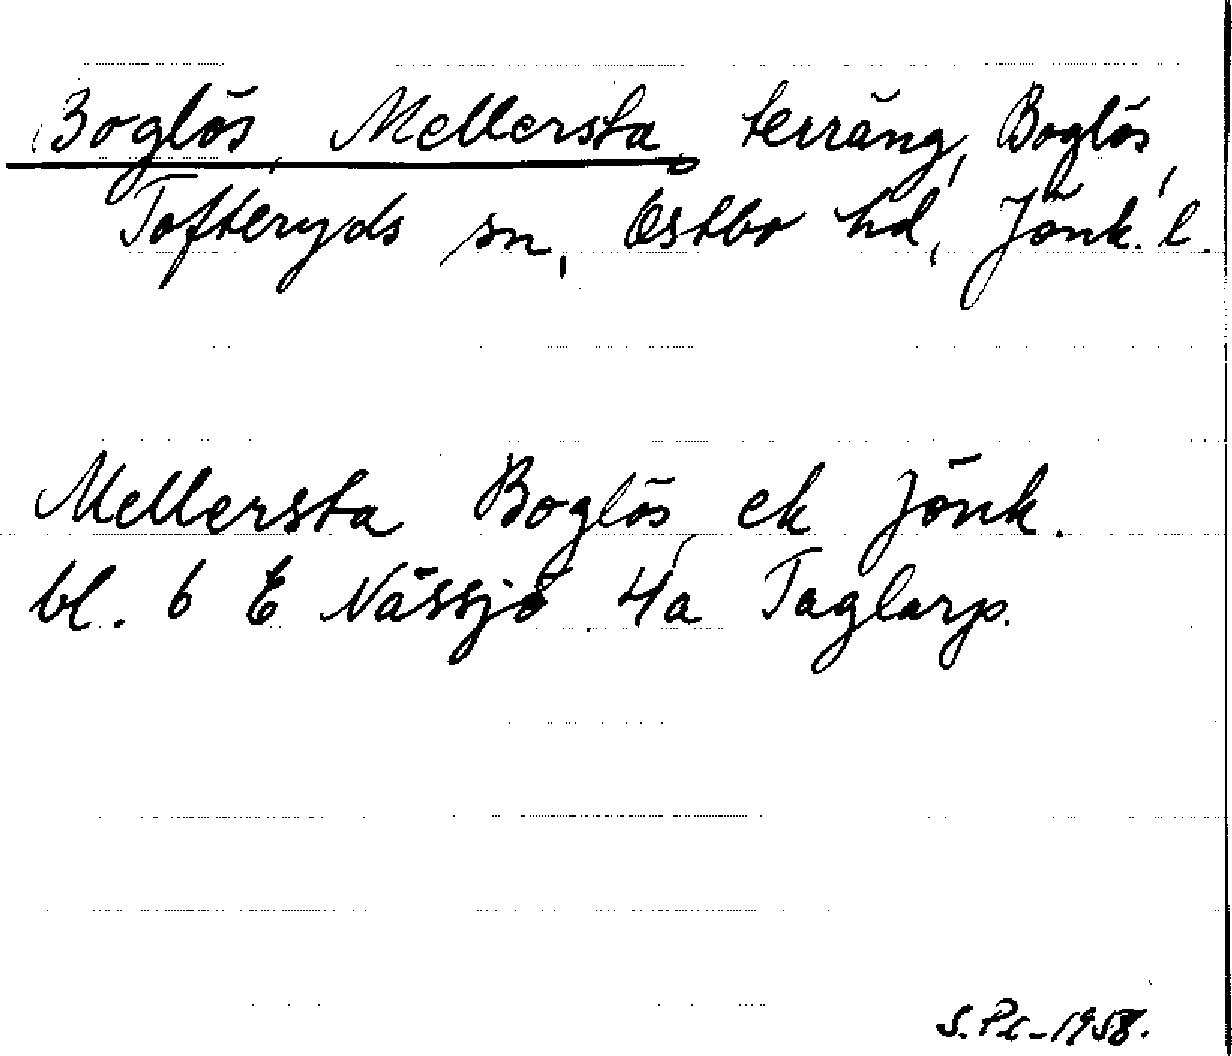 Boglös, Mellersta, terräng, Boglös,
Tofteryds sn, Östbo hd, Jönk. l.
Mellersta Boglös ek Jönk.
bl. 6 E Nässjö 4a Taglarp.
S. Pc-1958.